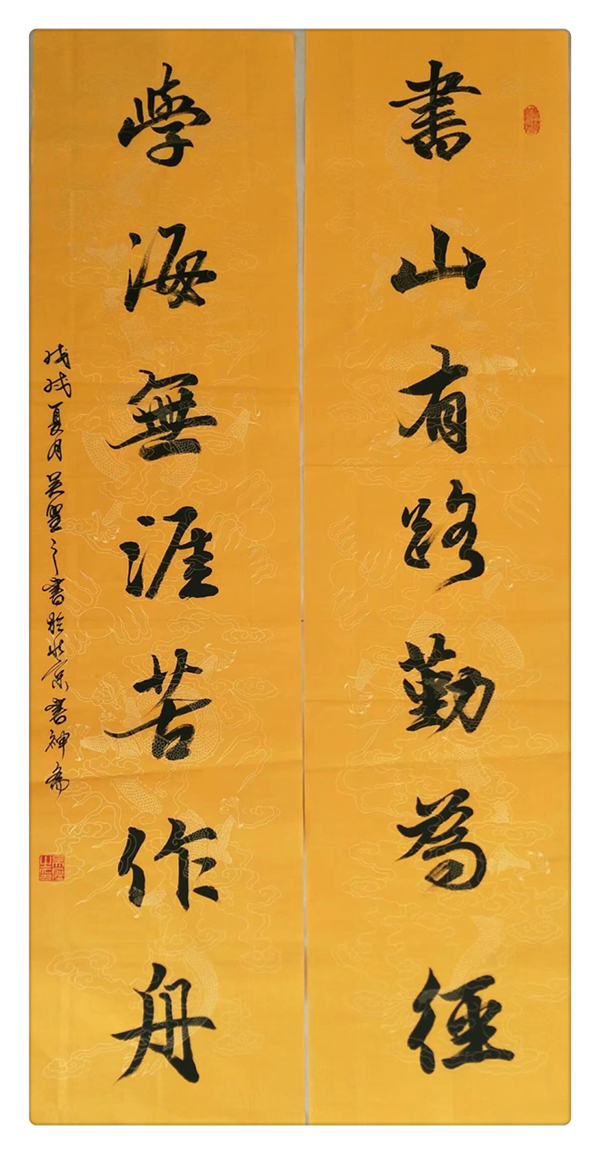 書山有路勤為徑
學海無涯苦作舟
戊戌夏月吴墨之書於北京書神斋